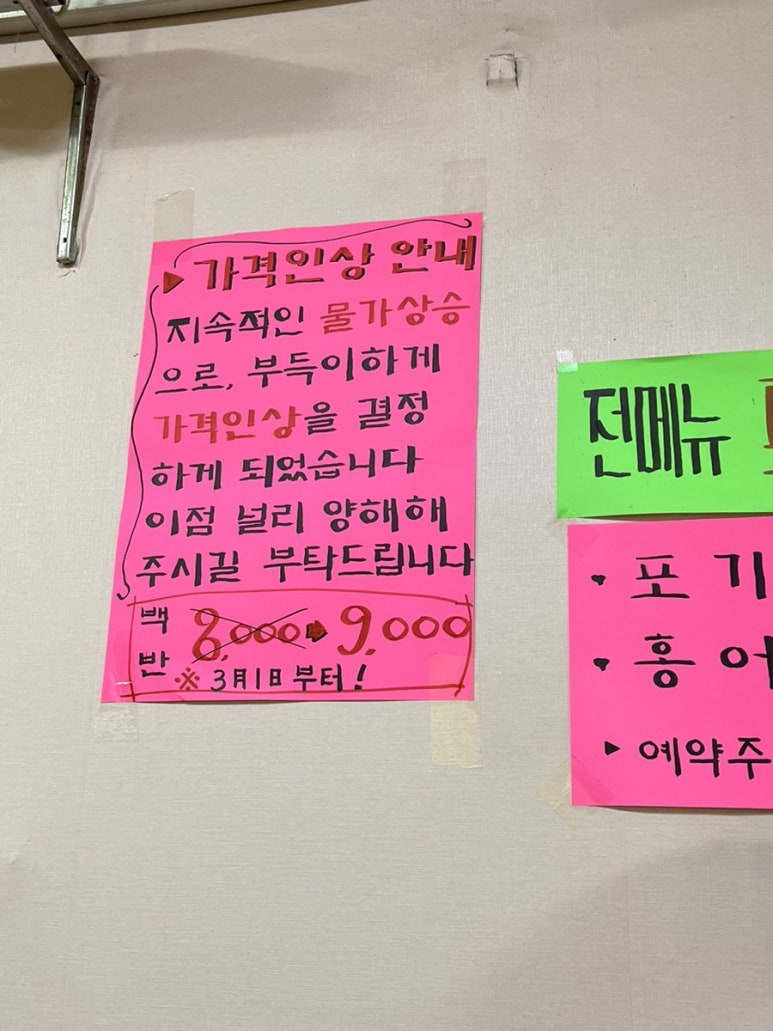 ▶ 가격인상 안내
지속적인 물가상승
으로, 부득이하게
가격인상을 결정
하게 되었습니다
이점 널리 양해해
주시길 부탁드립니다
백반 8,000 ▶ 9,000
※ 3月1日 부터!
전메뉴
• 포기
• 홍어
▶ 예약주